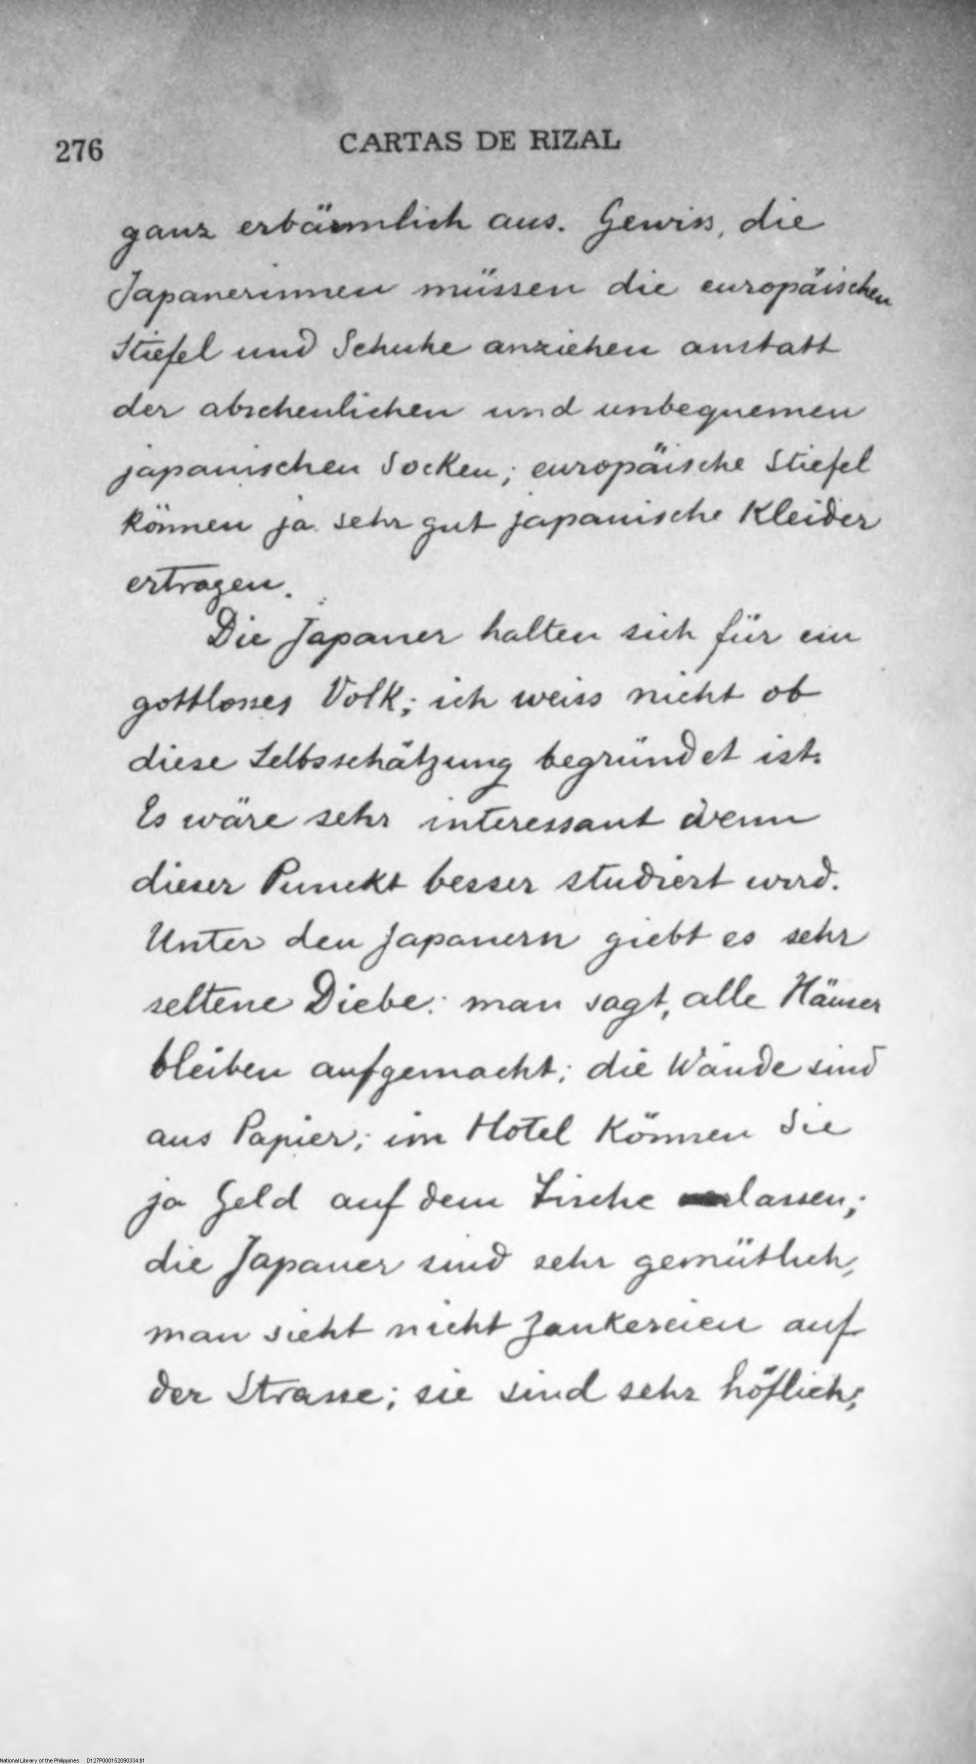 276 CARTAS DE RIZAL
ganz erbärmlich aus. Gewiss, die
Japanerinnen müssen die europäischen
Stiefel und Schuhe anziehen anstatt
der abscheulichen und unbequemen
japanischen Socken; europäische Stiefel
können ja sehr gut japanische Kleider
ertragen.
Die Japaner halten sich für ein
gottloses Volk; ich weiss nicht ob
diese Selbsschätzung begründet ist.
Es wäre sehr interessant wenn
dieser Punckt besser studiert wird.
Unter den Japanern giebt es sehr
seltene Diebe: man sagt, alle Häuser
bleiben aufgemacht; die Wände sind
aus Papier; im Hotel können Sie
ja Geld auf dem Tische lassen;
die Japaner sind sehr gemütlich,
man sieht nicht Zankereien auf
der Strasse; sie sind sehr höflich;
National Library of the Philippines